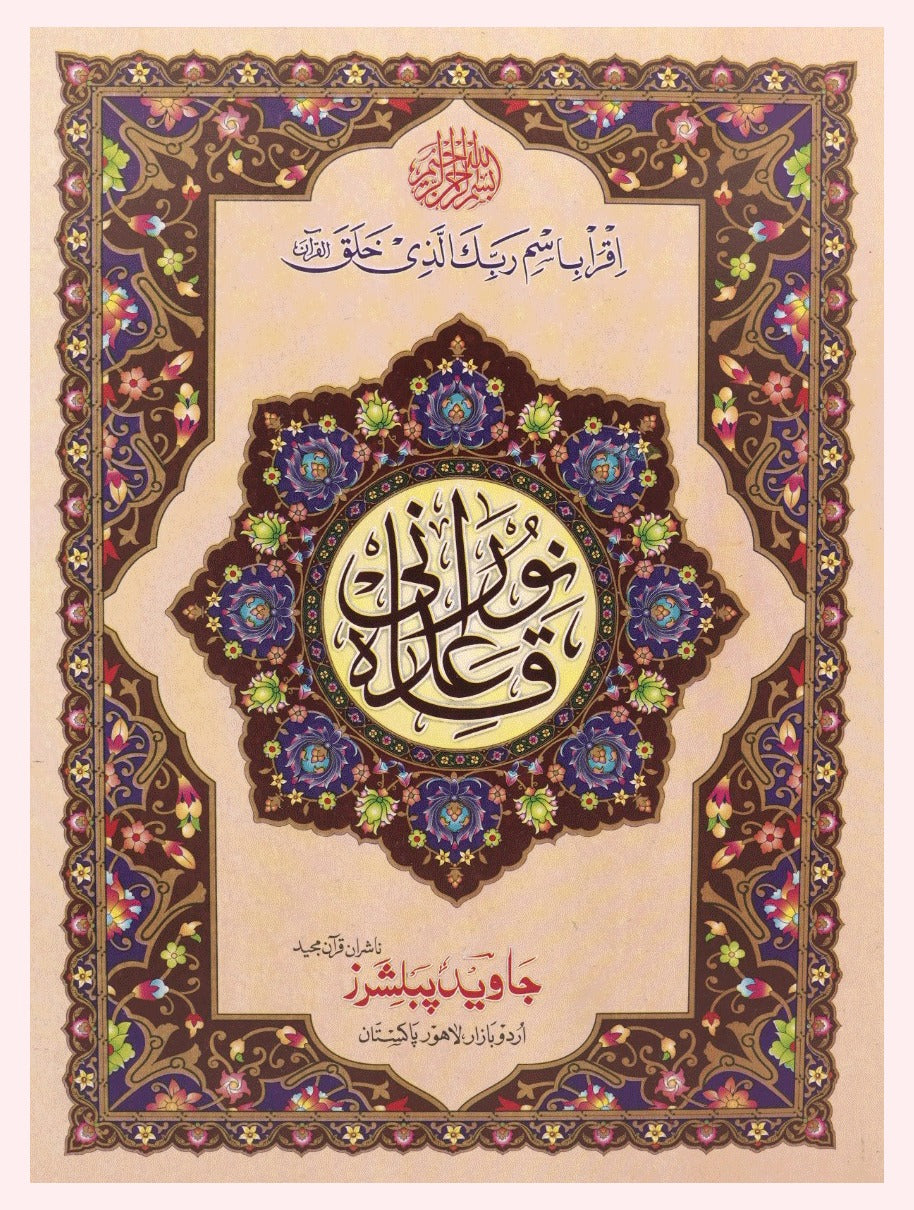 بسم الله الرحمن الرحيم
اِقْرَاْ بِاسْمِ رَبِّكَ الَّذِیْ خَلَقَ القرآن
نُورَانی
قَاعِدہ
ناشران قرآن مجید
جاوید پبلشرز
اُردو بازار، لاہور پاکستان